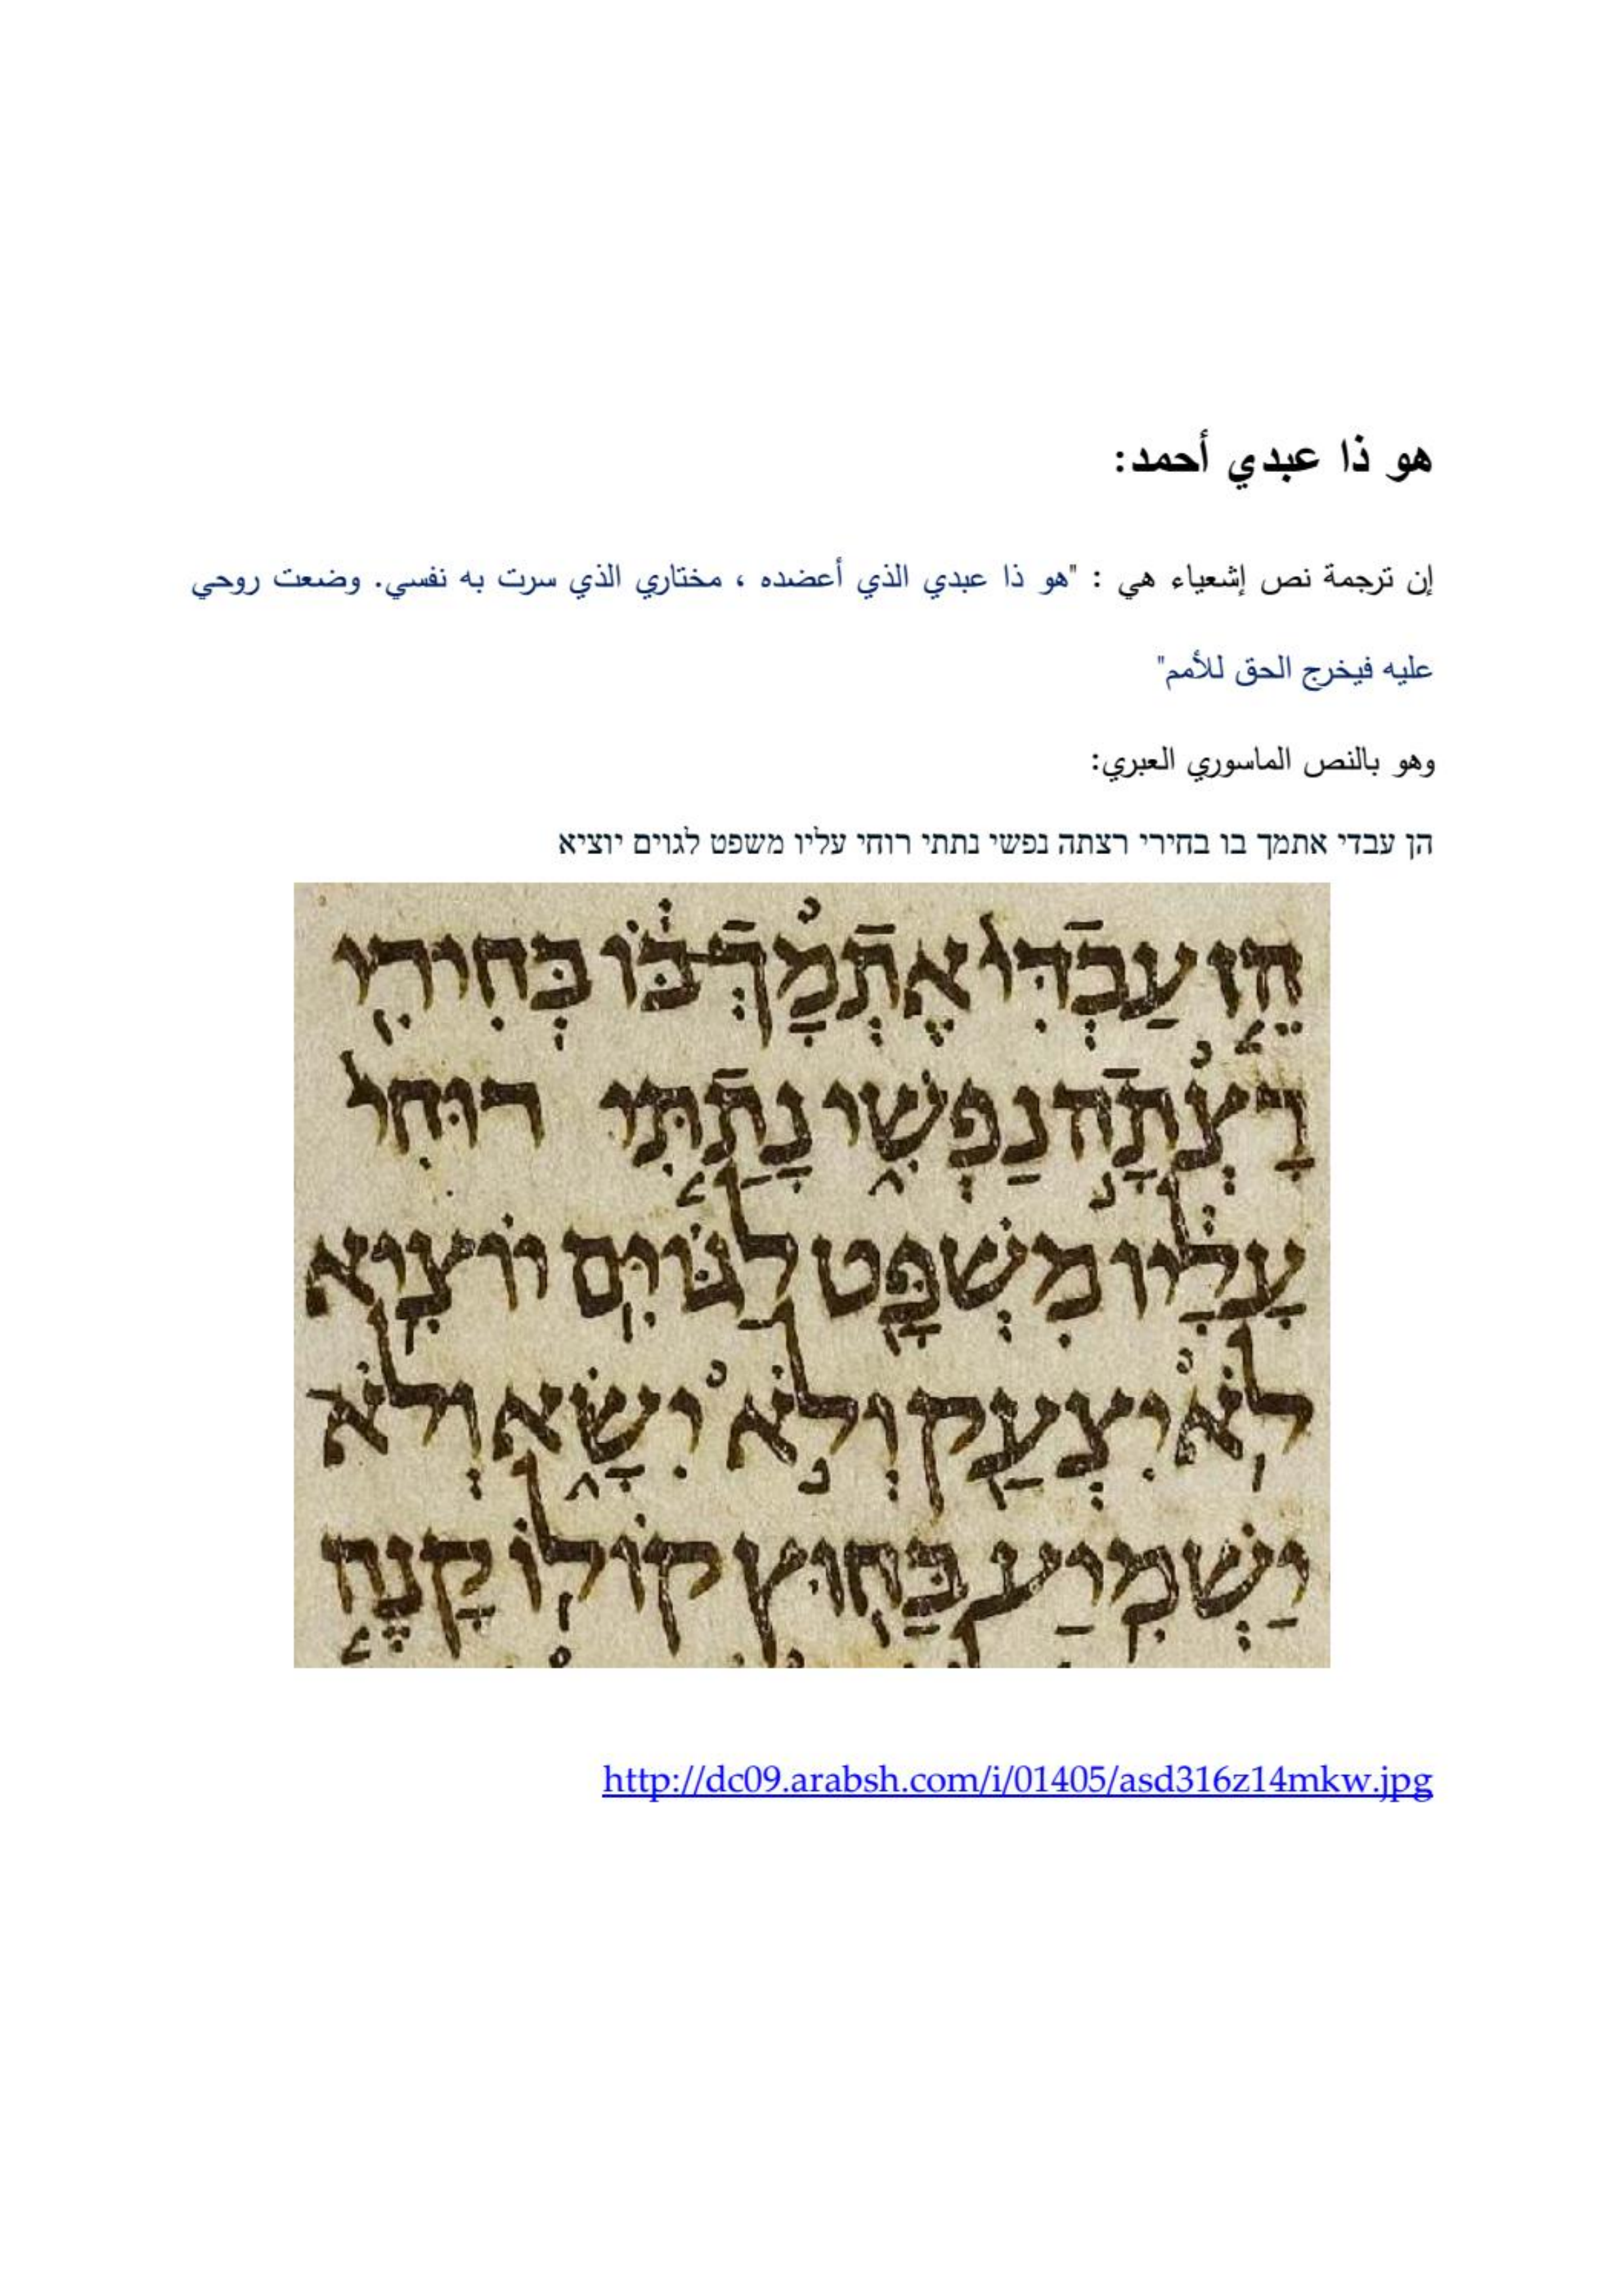 هو ذا عبدي أحمد:
إن ترجمة نص إشعياء هي : "هو ذا عبدي الذي أعضده ، مختاري الذي سرت به نفسي. وضعت روحي
عليه فيخرج الحق للأمم"
وهو بالنص الماسوري العبري:
הן עבדי אתמך בו בחירי רצתה נפשי נתתי רוחי עליו משפט לגוים יוציא
הֵ֤ן עַבְדִּי֙ אֶתְמָךְ־בּ֔וֹ בְּחִירִ֖י
רָצְתָ֣ה נַפְשִׁ֑י נָתַ֤תִּי רוּחִי֙
עָלָ֔יו מִשְׁפָּ֖ט לַגּוֹיִ֥ם יוֹצִֽיא
לֹ֥א יִצְעַ֖ק וְלֹ֣א יִשָּׂ֑א וְלֹֽא
יַשְׁמִ֥יעַ בַּח֖וּץ קוֹלֽוֹ קָנֶ֤ה
http://dc09.arabsh.com/i/01405/asd316z14mkw.jpg